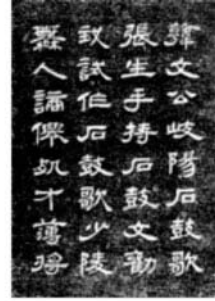 韓文公岐陽石鼓歌
張生手持石鼓文勸
我試作石鼓歌少陵
無人謫僊死才薄將